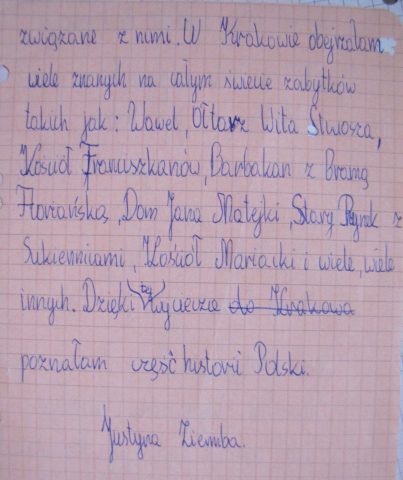 związane z nimi. W Krakowie obejrzałam
wiele znanych na całym świecie zabytków
takich jak: Wawel, Ołtarz Wita Stwosza,
Kościół Franciszkanów, Barbakan z Bramą
Floriańską, Dom Jana Matejki, Stary Rynek z
Sukiennicami, Kościół Mariacki i wiele, wiele
innych. Dzięki tej wycieczce do Krakowa
poznałam część historii Polski.
Justyna Ziemba.